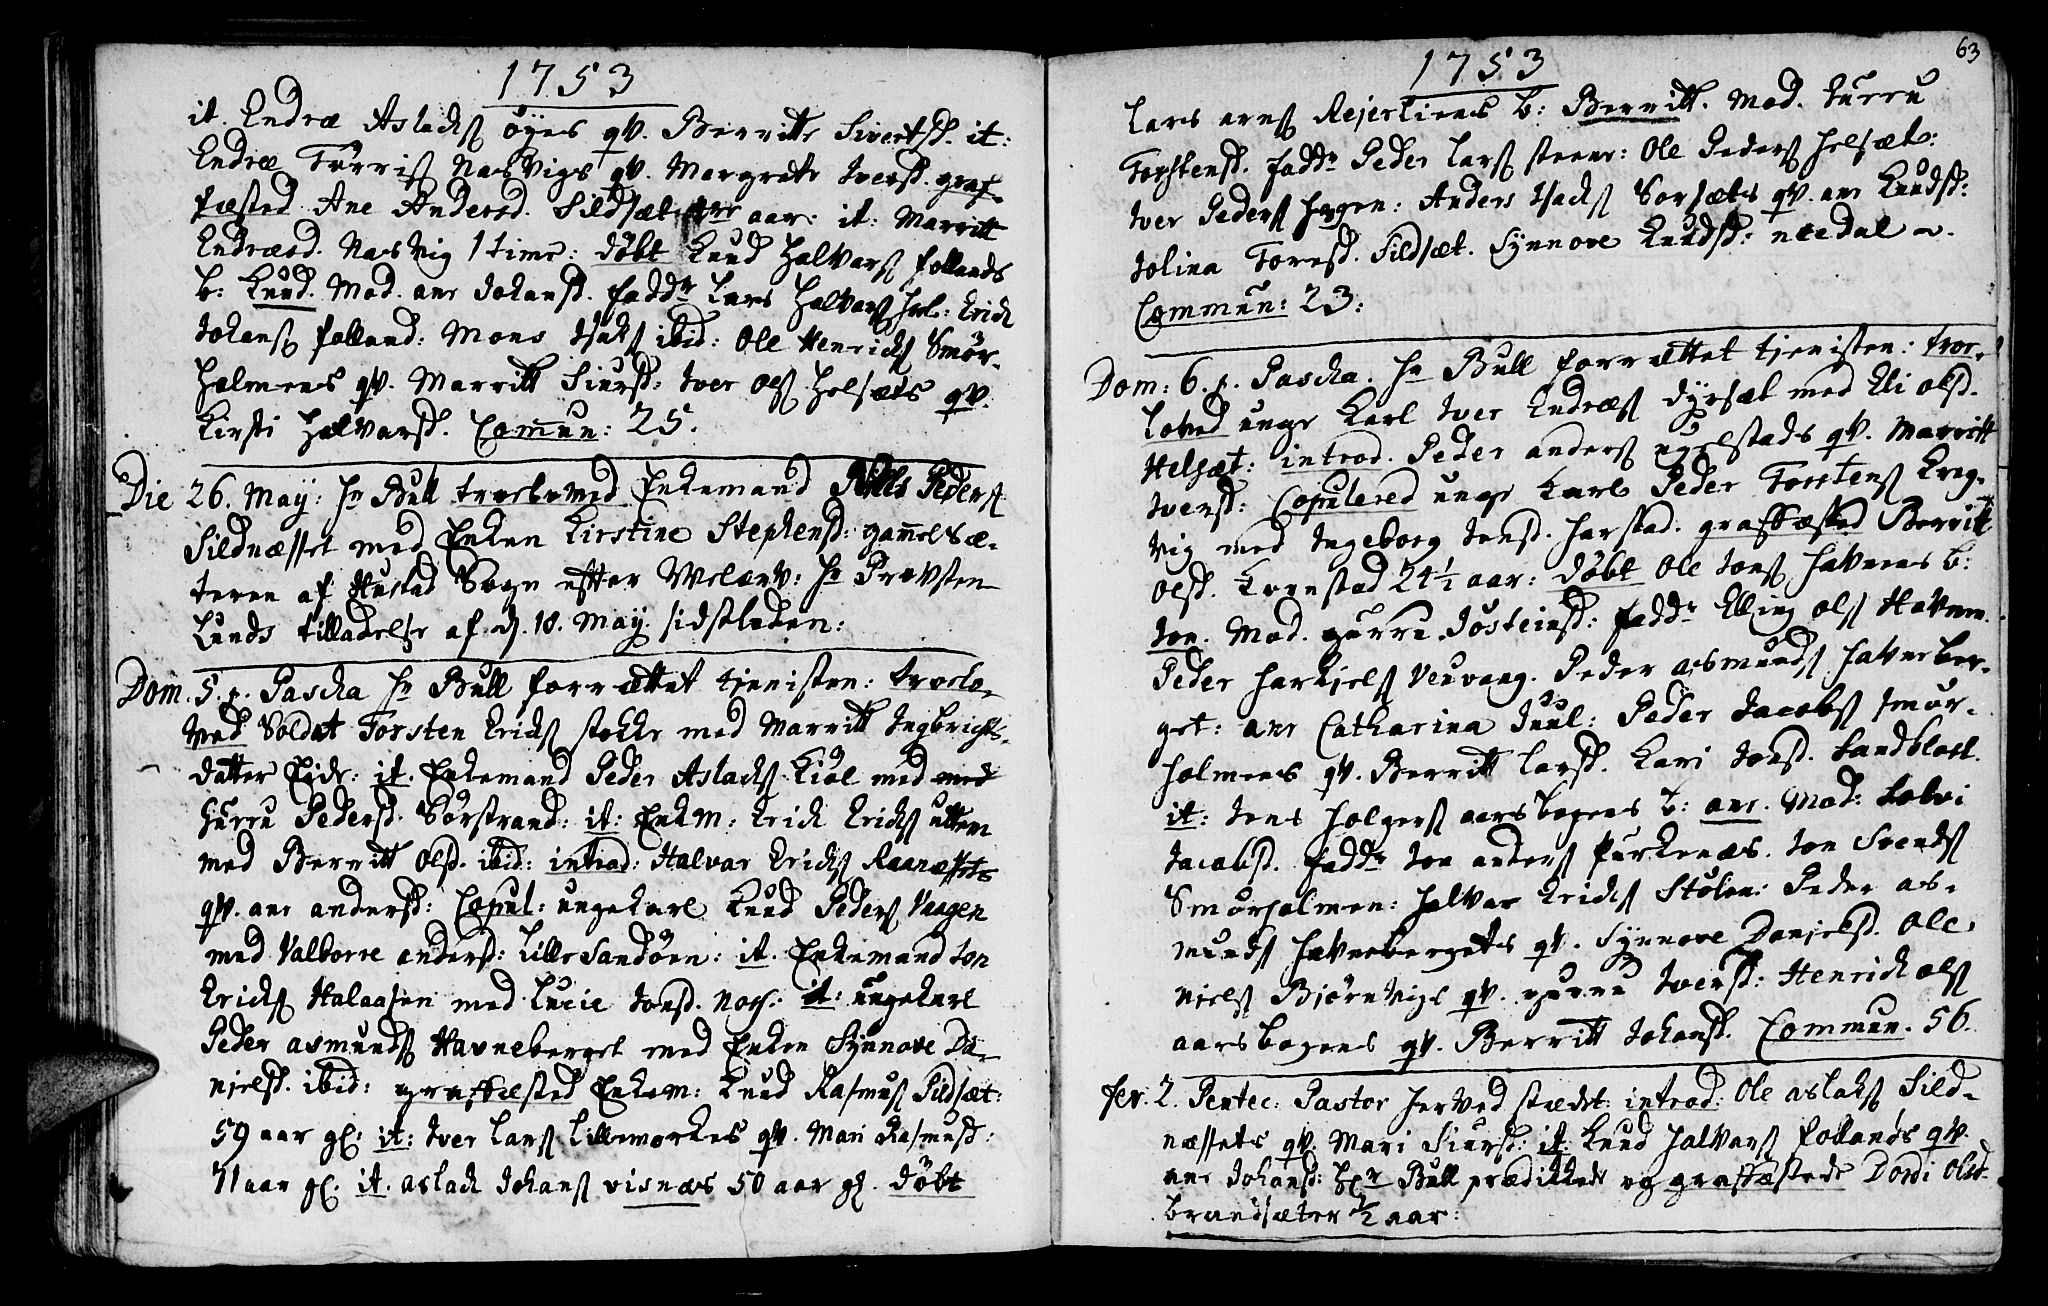 1753
it. Endræ Aslachs øyes qv. Berritte Sivertsd. it:
Endræ Tørris Nasvigs qv. Margrete Iversd. graf-
fæsted Ane Andersd. Sildsæt aar: it: Marritt
Endræsd. Nasvig 1 time: døbt Knud Halvars follands
b: Knud. Mod. ane Johansd. fadde Lars Halvars Hol: Erich
Johans folland: Mons Isaks ibid: Ole Henrichs Smør-
holmens qv. Marritt Siursd: Iver Ols Helsæts qv.
Kirsti Halvarsd. Commun: 25.
Die 26. May: Hr Bull troelovred Enkemand Nills Peders
Sildnæsset med Enken Kirstine Stephensd: gammelsæ-
teren af Hustad Sogn efter Welærv: Hr Provsten
Lunds tilladelse af d. 18. May sidstleden:
Dom. 5. p. Pascha Hr Bull forrættet tjenisten: troelo-
ved Soldat Torsten Erichs stokke med Marritt Ingbrichts-
datter Eide: it. Enkemand Peder Aslachs Kiøl med med
Gurru Pedersd. Sørstrand: it: Enkm: Erich Erichs
med Berritt Olsd. ibid: introd: Halvar Erichs Raanæssets
qv. ane andersd: Copul: ungekarl Knud Peders Vaagen
med Valborre andersd: Lille Sandøen: it. Enkemand Jon
Erichs Halaasen med Lucie Jonsd. Nogs: it: ungekarl
Peder asmunds Havneberget med Enken Synnove Da-
nielsd. ibid: graffæsted Enkem: Knud Rasmus Sildsæt:
59 aar gl: it: Iver Lars Lillemorkes qv. Mari Rasmusd:
71 aar gl. it. aslach Johans visnæs 50 aar gl. døbt
63
1753
Lars arns Rejerliens b: Berritt. Mod. Gurru
Torstensd. fadde Peder Lars steene: Ole Peders Helsæt:
Iver Peders Hagen: Anders Isachs Sorsæts qv. ane Knudsd:
Jolina Toresd. Sildsæt. Synnove Knudsd: needal
Commun: 23:
Dom: 6. p. Pascha. Hr Bull forrættet tjenisten: troe-
loved unge Karl Iver Endræs Dyrsæt med Eli Olsd.
Helsæt: introd. Peder anders ugelstads qv. Marritt
Iversd: Copulered unge Karl Peder Torstens Kreg-
vig med Ingeborg Jensd. Harstad. graffæsted Berritt
Olsd. Kornstad 24½ aar: døbt Ole Jons Havnens b:
Jon. Mod. gurru Jøsteinsd: fadde Elling Ols Havnen.
Peder Harkjels Vevang. Peder asmunds Havneber-
get: ane Catharina Juul: Peder Jacobs Smør-
holmens qv. Berritt Larsd. Kari Jonsd. Sandblost.
it: Jens Holgers aarsbogens b: ane. Mod: Solvi
Jacobsd. fadde Jon anders Purkenæs. Jon Svends
Smørholmen: Halvar Erichs Stølen: Peder as-
munds Havnebergets qv. Synnove Danjelsd. Ole
Niels Bjørnvigs qv. gurru Iversd: Henrich Ols
aarsbogens qv. Berritt Johansd. Commun. 56.
fer. 2. Pentec: Pastor herved stædet: introd: Ole aslaks Sild-
næssets qv. Mari Siursd: it: Knud Halvars follands qv.
ane Johansd: Hr Bull prædikkede og graffæstede Dordi Olsd.
brandsæter ½ aar: